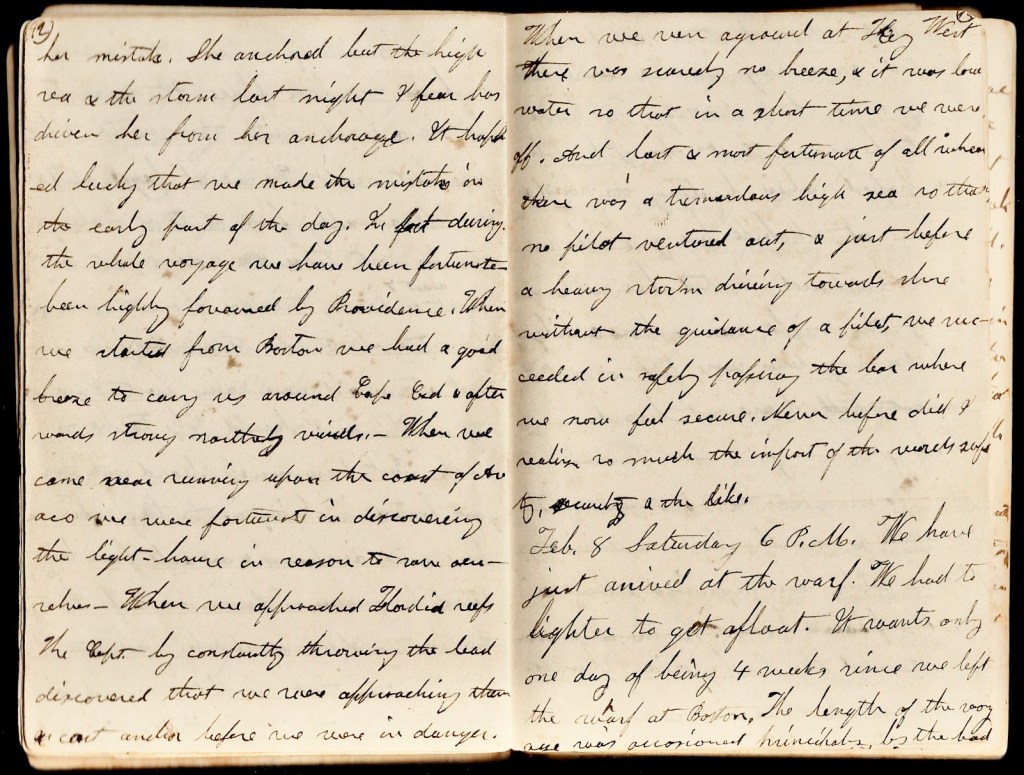 her mistake. She anchored but the high
sea & the storm last night I fear has
driven her from her anchorage. It happen
ed lucky that we made the mistake in
the early part of the day. In fact during
the whole voyage we have been fortunate
been highly favoured by Providence. When
we started from Boston we had a good
breeze to carry us around Cape Cod & after
wards strong northerly winds. – When we
came near running upon the coast of
aco we were fortunate in discovering
the light-house in reason to save our–
selves – When we approached Florida reefs
The Capt. by constantly throwing the lead
discovered that we were approaching them
& cast anchor before we were in danger.
When we were aground at Key West
there was scarcely no breeze, & it was low
water so that in a short time we were
off. And last & most fortunate of all when
there was a tremendous high sea so that
no pilot ventured out, & just before
a heavy storm driving towards shore
without the guidance of a pilot, we suc–
ceeded in safely passing the bar where
we now feel secure. Never before did I
realize so much the import of the words safe
ty, security & the like.
Feb. 8 Saturday 6 P.M. We have
just arrived at the warf. We had to
lighter to get afloat. It wants only
one day of being 4 weeks since we left
the warf at Boston. The length of the voy
age was occasioned principally by the bad